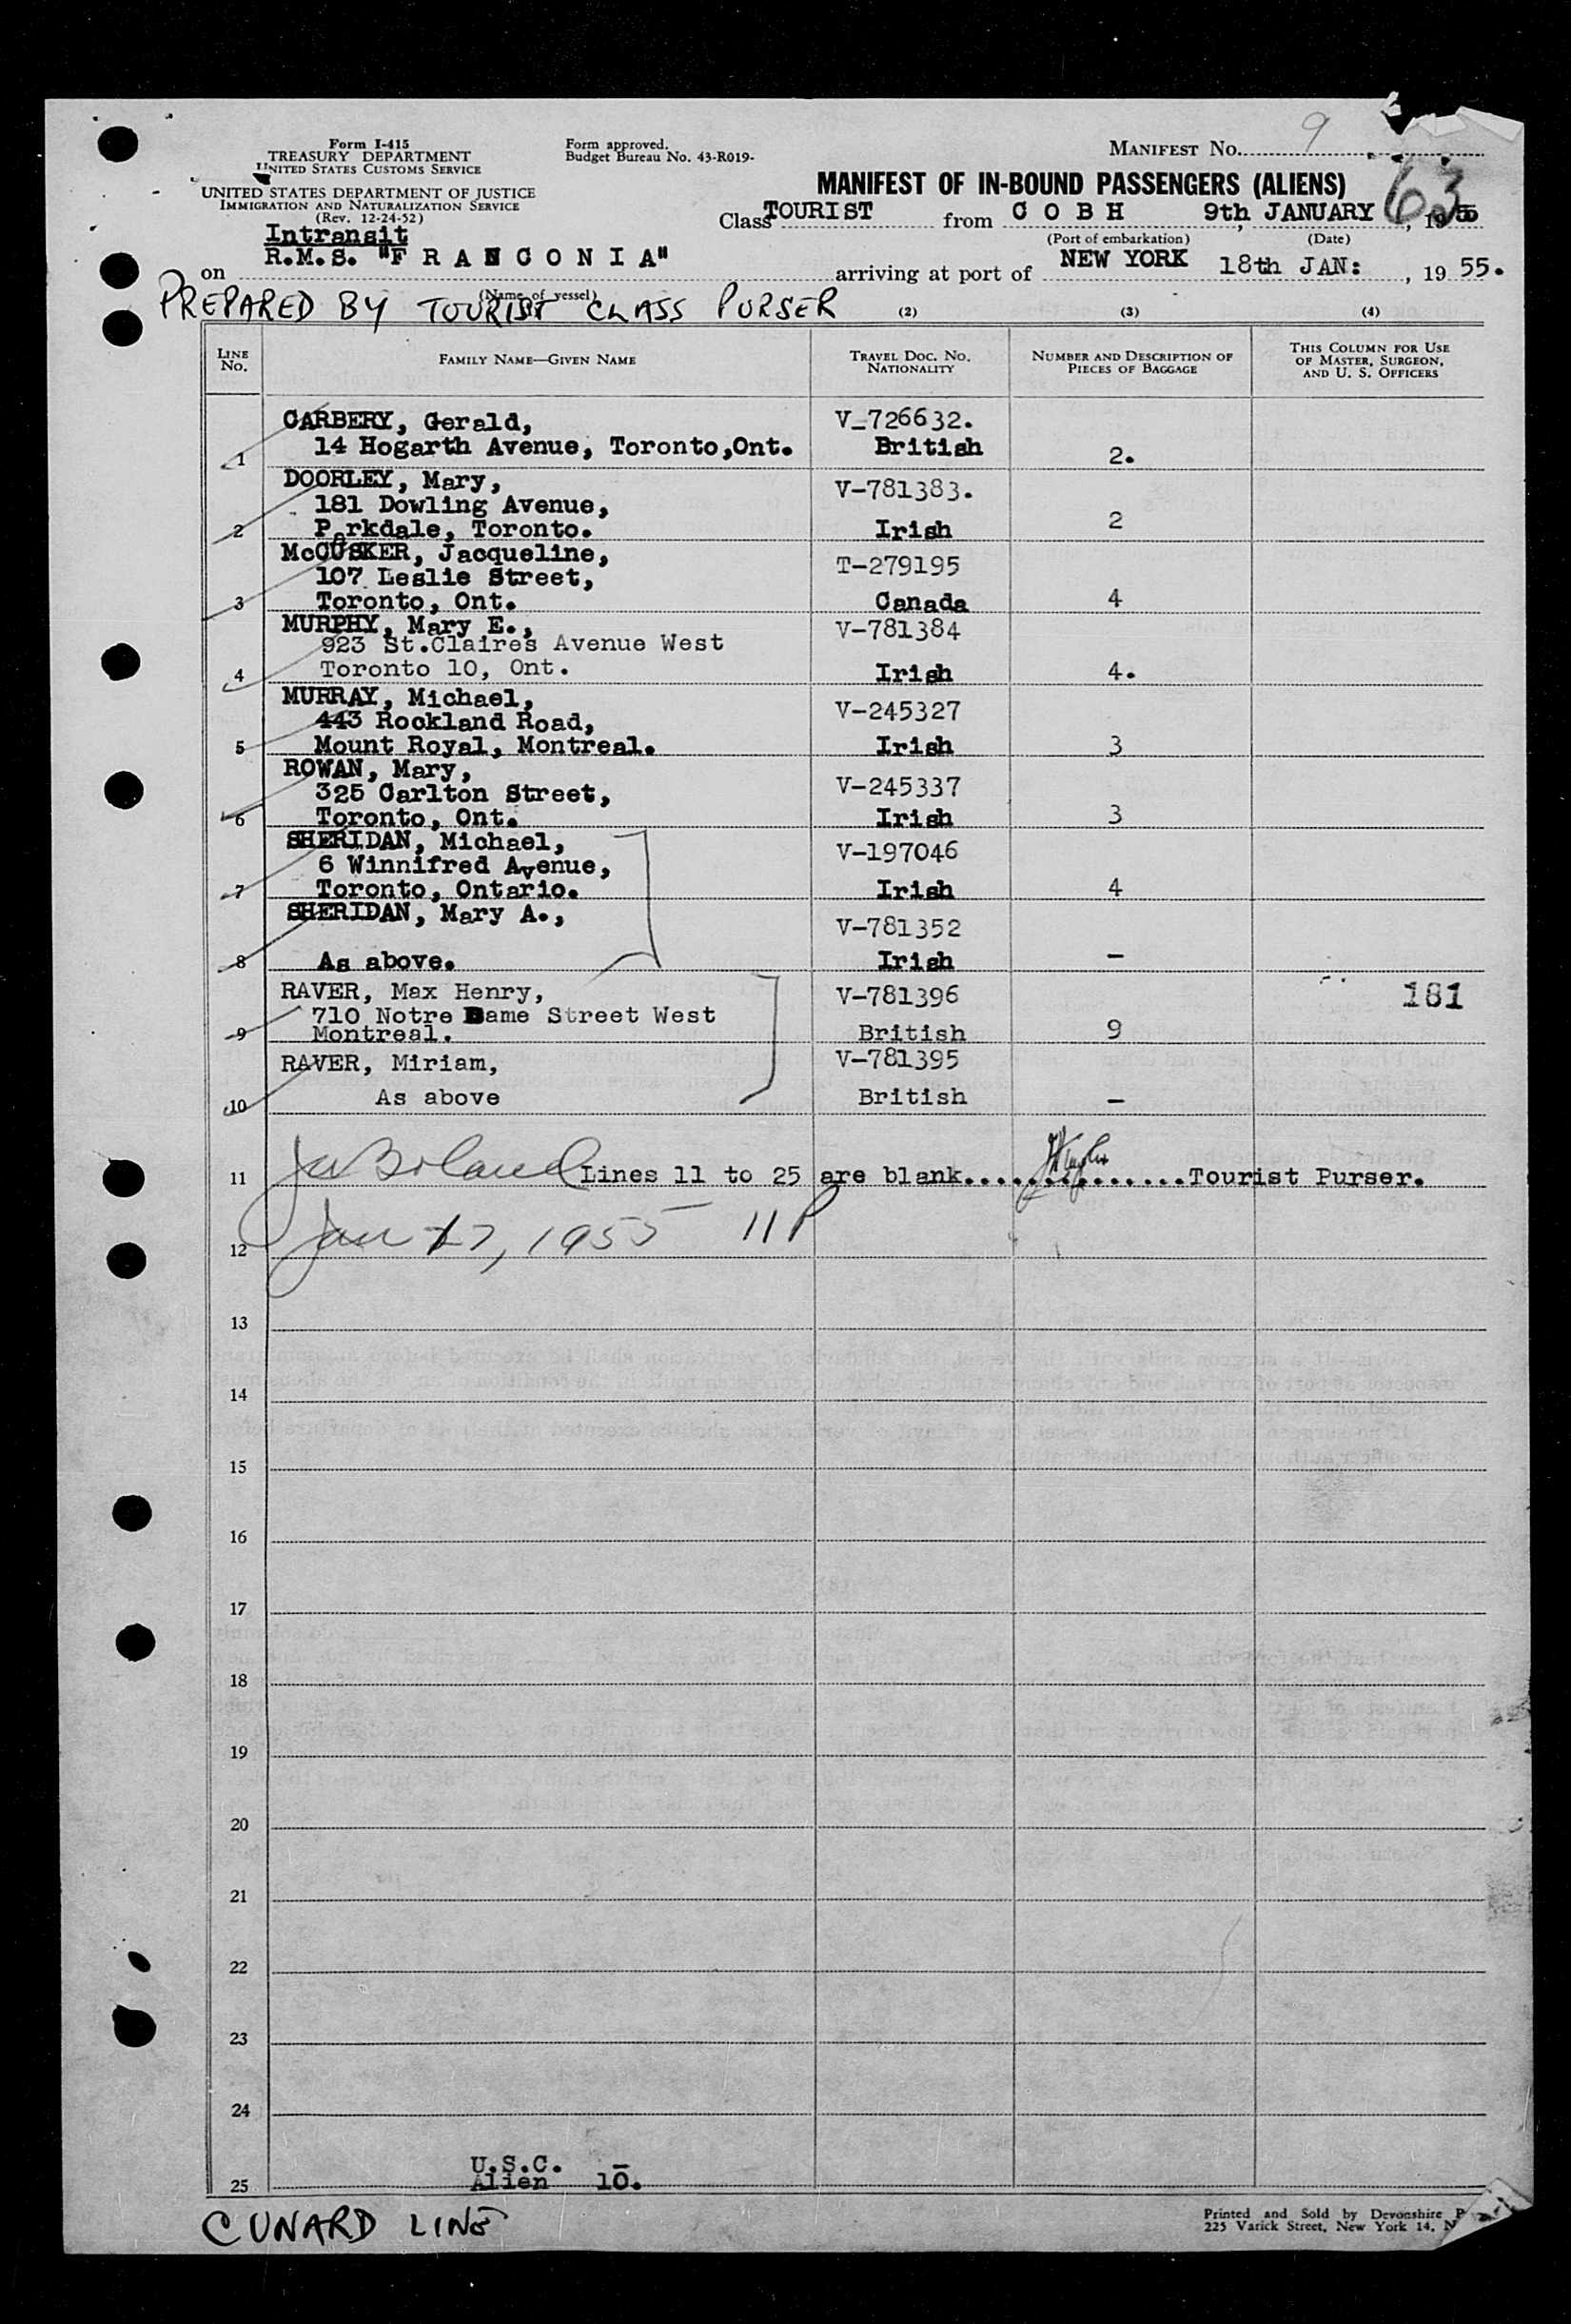 Form I-415
TREASURY DEPARTMENT
UNITED STATES CUSTOMS SERVICE
UNITED STATES DEPARTMENT OF JUSTICE
IMMIGRATION AND NATURALIZATION SERVICE
(Rev. 12-24-52)
Form approved.
Budget Bureau No. 43-R019-
MANIFEST No. 9
63
MANIFEST OF IN-BOUND PASSENGERS (ALIENS)
Class TOURIST from C O B H 9th JANUARY, 1955
(Port of embarkation) (Date)
Intransit
on R.M.S. "F R A N C O N I A" arriving at port of NEW YORK 18th JAN: , 19 55.
(Name of vessel)
PREPARED BY TOURIST CLASS PURSER
(2) (3) (4)
LINE No. FAMILY NAME—GIVEN NAME TRAVEL DOC. NO. NATIONALITY NUMBER AND DESCRIPTION OF PIECES OF BAGGAGE THIS COLUMN FOR USE OF MASTER, SURGEON, AND U. S. OFFICERS
CARBERY, Gerald, V-726632.
1 14 Hogarth Avenue, Toronto,Ont. British 2.
DOORLEY, Mary, V-781383.
181 Dowling Avenue,
2 Parkdale, Toronto. Irish 2
McCUSKER, Jacqueline, T-279195
107 Leslie Street,
3 Toronto, Ont. Canada 4
MURPHY, Mary E., V-781384
923 St.Claires Avenue West
4 Toronto 10, Ont. Irish 4.
MURRAY, Michael, V-245327
443 Rockland Road,
5 Mount Royal, Montreal. Irish 3
ROWAN, Mary, V-245337
325 Carlton Street,
6 Toronto, Ont. Irish 3
SHERIDAN, Michael, V-197046
6 Winnifred Avenue,
7 Toronto, Ontario. Irish 4
SHERIDAN, Mary A., V-781352
8 As above. Irish –
RAVER, Max Henry, V-781396 181
710 Notre Dame Street West
9 Montreal. British 9
RAVER, Miriam, V-781395
10 As above British –
11 Lines 11 to 25 are blank...............Tourist Purser.
12 Jan 17, 1955 11P
13
14
15
16
17
18
19
20
21
22
23
24
U.S.C. –
25 Alien 10.
CUNARD LINE
Printed and Sold by Devonshire
225 Varick Street, New York 14,